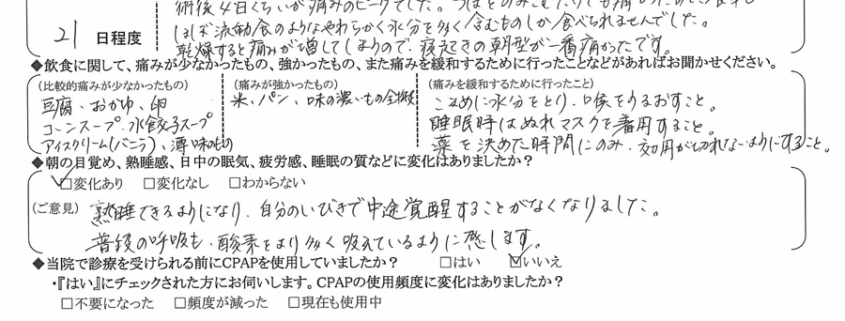 術後4日くらいが痛みのピークでした。つばをのみこむだけでも痛かった
しばらく流動食のようなやわらかく水分を多く含むものしか食べられませんでした。
21 日程度
乾燥すると痛みが増してしまうので、寝起きの朝型が一番痛かったです。
◆飲食に関して、痛みが少なかったもの、強かったもの、また痛みを緩和するために行ったことなどがあればお聞かせください。
(比較的痛みが少なかったもの) (痛みが強かったもの) (痛みを緩和するために行ったこと)
豆腐、おかゆ、卵 米、パン、味の濃いもの全般 こまめに水分をとり、口喉をうるおすこと。
コーンスープ、水餃子スープ 睡眠時はぬれマスクを着用すること。
アイスクリーム(バニラ)、薄味のもの 薬を決めた時間にのみ、効用が切れないようにすること。
◆朝の目覚め、熟睡感、日中の眠気、疲労感、睡眠の質などに変化はありましたか?
☑変化あり □変化なし □わからない
(ご意見) 熟睡できるようになり、自分のいびきで中途覚醒することがなくなりました。
普段の呼吸も、酸素をより多く吸えているように感じます。
◆当院で診療を受けられる前にCPAPを使用していましたか? □はい ☑いいえ
・『はい』にチェックされた方にお伺いします。CPAPの使用頻度に変化はありましたか?
□不要になった □頻度が減った □現在も使用中